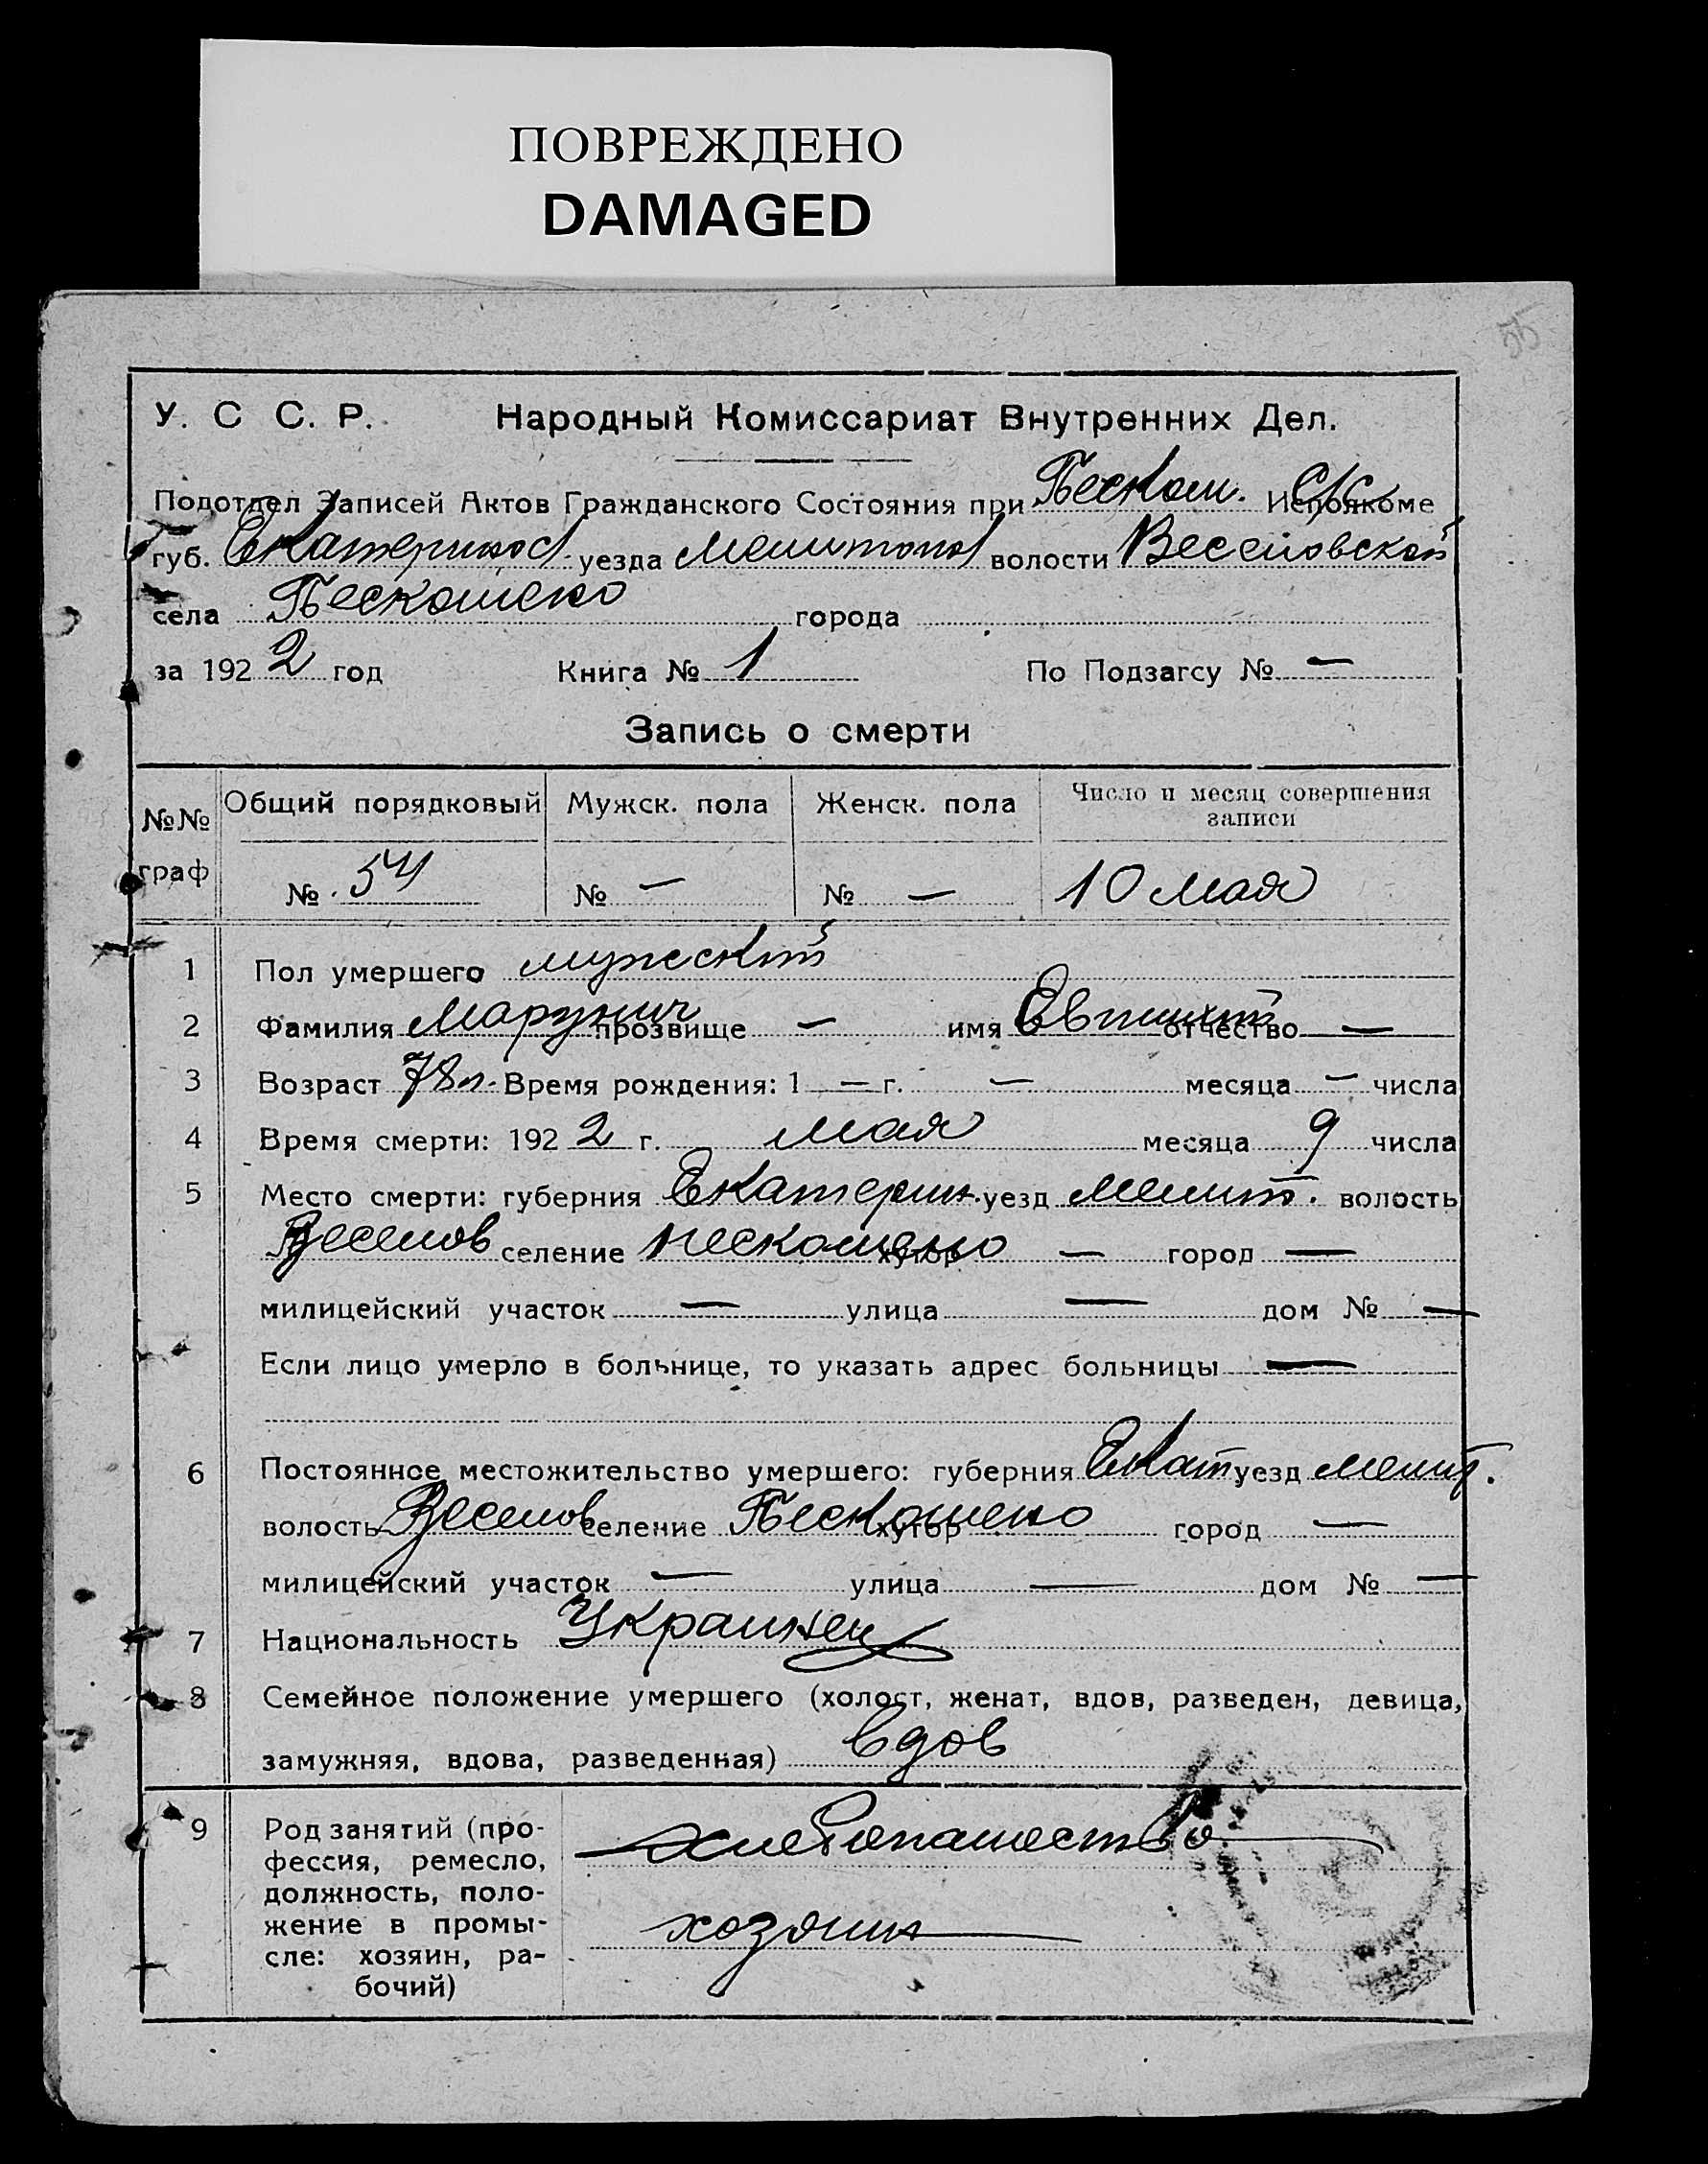 ПОВРЕЖДЕНО
DAMAGED
55
У. С С. Р. Народный Комиссариат Внутренних Дел.
Подотдел Записей Актов Гражданского Состояния при Песком. С/С Исполкоме
губ. Екатеринос. уезда Мелитопол волости Веселовской
села Пескошено города
за 1922 год Книга № 1 По Подзагсу № —
Запись о смерти
№№ граф Общий порядковый Мужск. пола Женск. пола Число и месяц совершения записи
№ 54 № — № — 10 мая
1 Пол умершего мужеский
2 Фамилия Марунич прозвище — имя Евтихий отчество —
3 Возраст 78 л. Время рождения: 1 — г. — месяца — числа
4 Время смерти: 1922 г. мая месяца 9 числа
5 Место смерти: губерния Екатерин. уезд Мелит. волость
Веселов селение Пескошено хутор — город —
милицейский участок — улица — дом № —
Если лицо умерло в больнице, то указать адрес больницы —
6 Постоянное местожительство умершего: губерния Екат уезд мелит.
волость Веселов селение Пескошено хутор город —
милицейский участок — улица — дом № —
7 Национальность Украинец
8 Семейное положение умершего (холост, женат, вдов, разведен, девица,
замужняя, вдова, разведенная) вдов
9 Род занятий (про-
фессия, ремесло,
должность, поло-
жение в промы-
сле: хозяин, ра-
бочий)
хлебопашество
хозяин